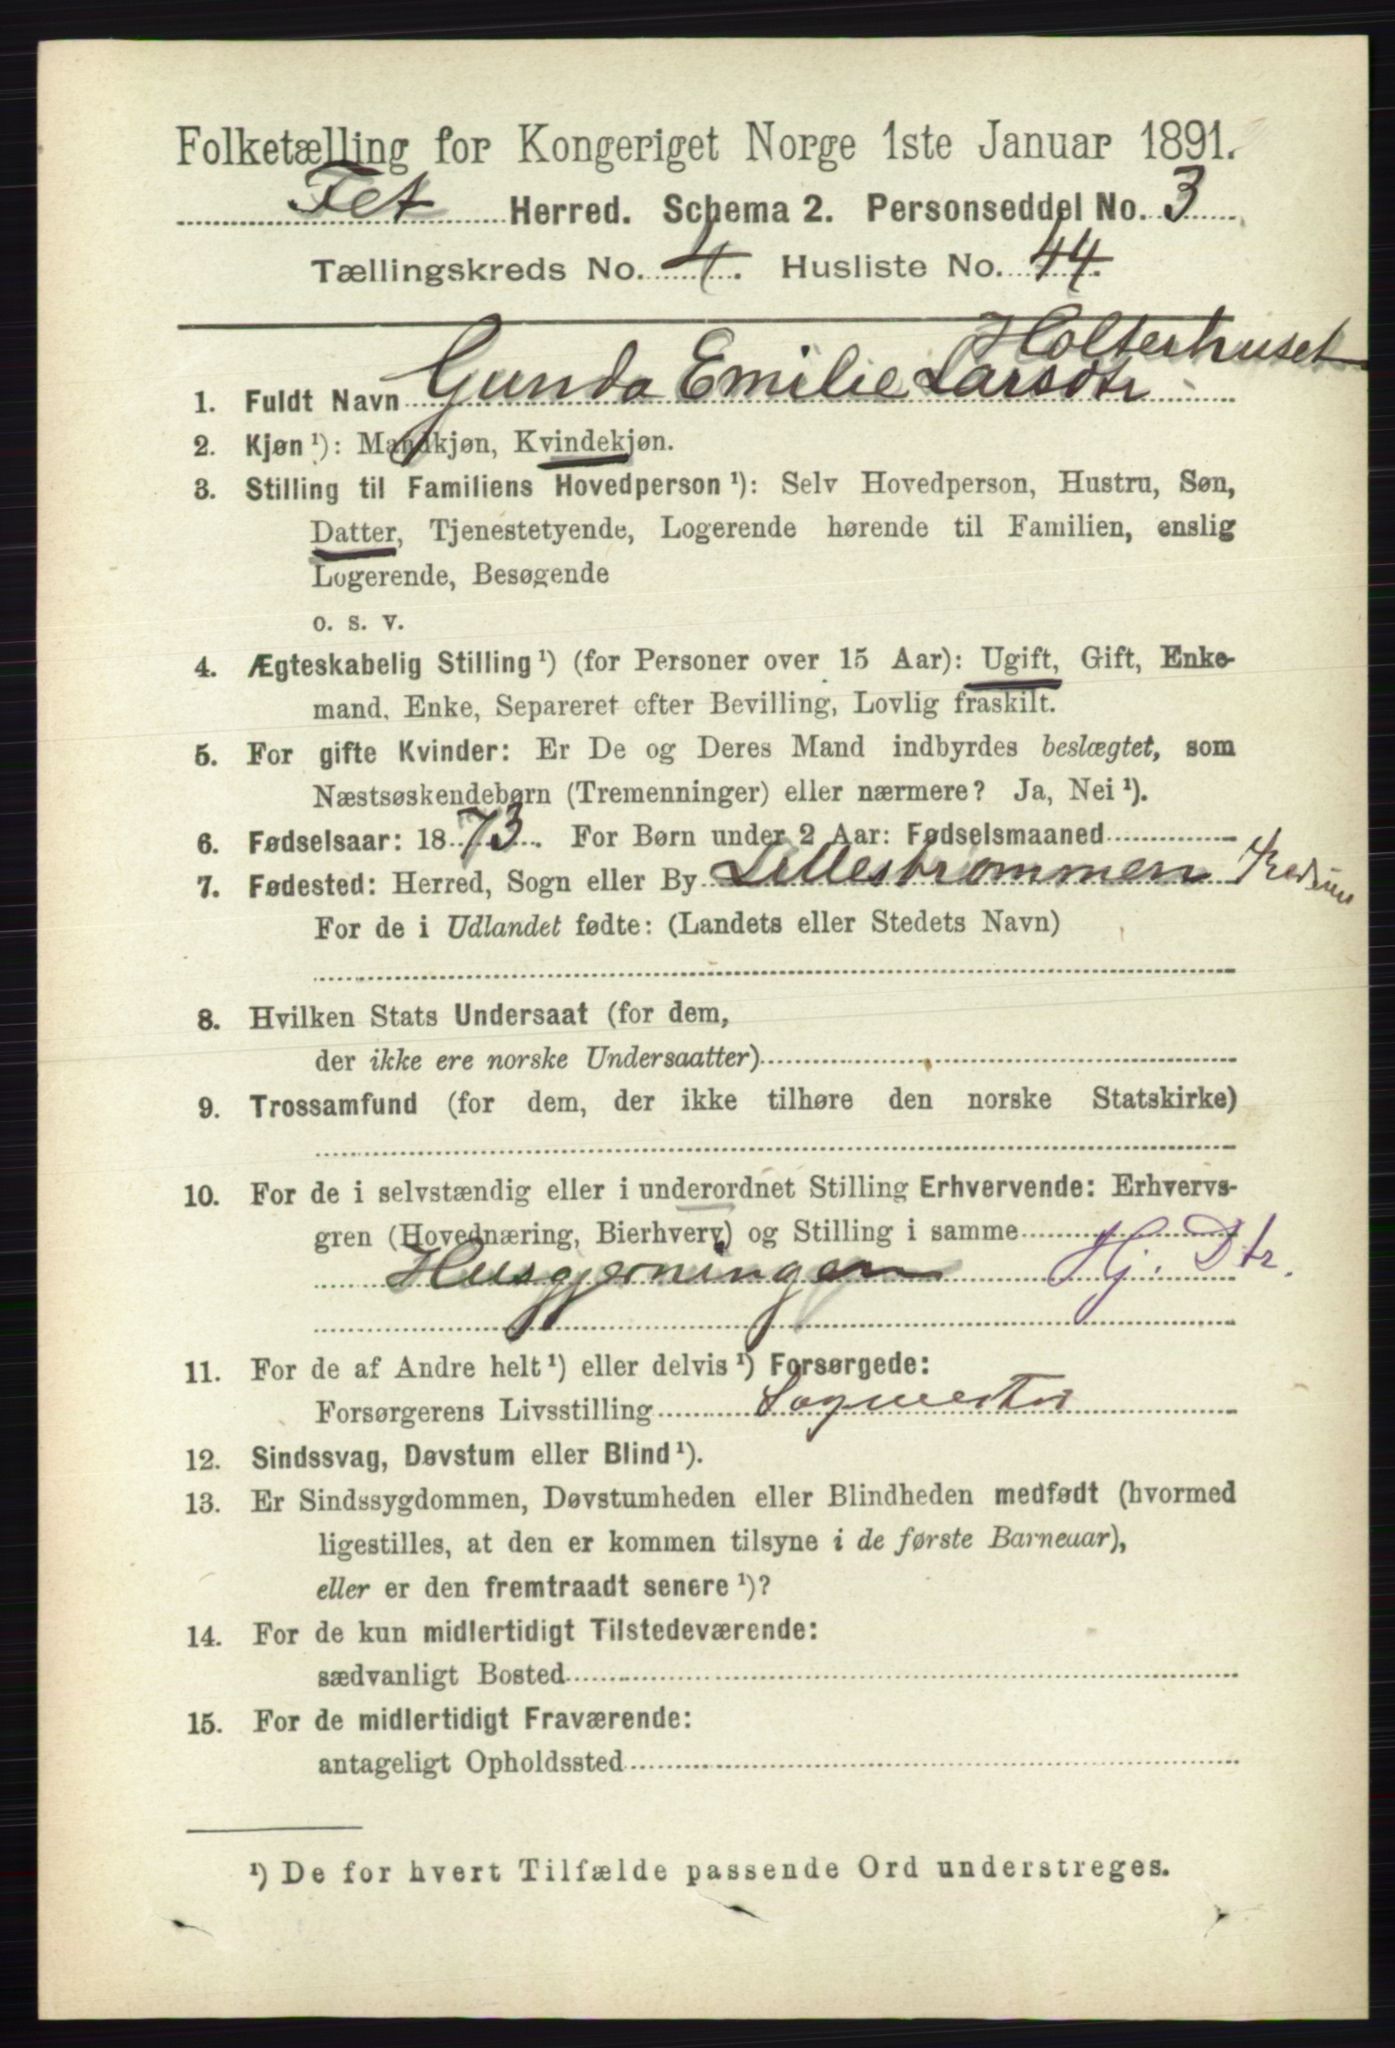 Folketælling for Kongeriget Norge 1ste Januar 1891.
Fet Herred. Schema 2. Personseddel No. 3
Tællingskreds No. 4. Husliste No. 44.
Holterhuset
1. Fuldt Navn Gunda Emilie Larsdtr
2. Kjøn ¹): Mandkjøn, Kvindekjøn.
3. Stilling til Familiens Hovedperson ¹): Selv Hovedperson, Hustru, Søn,
Datter, Tjenestetyende, Logerende hørende til Familien, enslig
Logerende, Besøgende
o. s. v.
4. Ægteskabelig Stilling ¹) (for Personer over 15 Aar): Ugift, Gift, Enke-
mand, Enke, Separeret efter Bevilling, Lovlig fraskilt.
5. For gifte Kvinder: Er De og Deres Mand indbyrdes beslægtet, som
Næstsøskendebørn (Tremenninger) eller nærmere? Ja, Nei ¹).
6. Fødselsaar: 1873. For Børn under 2 Aar: Fødselsmaaned
7. Fødested: Herred, Sogn eller By Lillestrømmen
For de i Udlandet fødte: (Landets eller Stedets Navn)
8. Hvilken Stats Undersaat (for dem,
der ikke ere norske Undersaatter)
9. Trossamfund (for dem, der ikke tilhøre den norske Statskirke)
10. For de i selvstændig eller i underordnet Stilling Erhvervende: Erhvervs-
gren (Hovednæring, Bierhverv) og Stilling i samme
Husgjerningen Hj. Dtr.
11. For de af Andre helt ¹) eller delvis ¹) Forsørgede:
Forsørgerens Livsstilling
12. Sindssvag, Døvstum eller Blind ¹).
13. Er Sindssygdommen, Døvstumheden eller Blindheden medfødt (hvormed
ligestilles, at den er kommen tilsyne i de første Barneuar),
eller er den fremtraadt senere ¹)?
14. For de kun midlertidigt Tilstedeværende:
sædvanligt Bosted
15. For de midlertidigt Fraværende:
antageligt Opholdssted
¹) De for hvert Tilfælde passende Ord understreges.